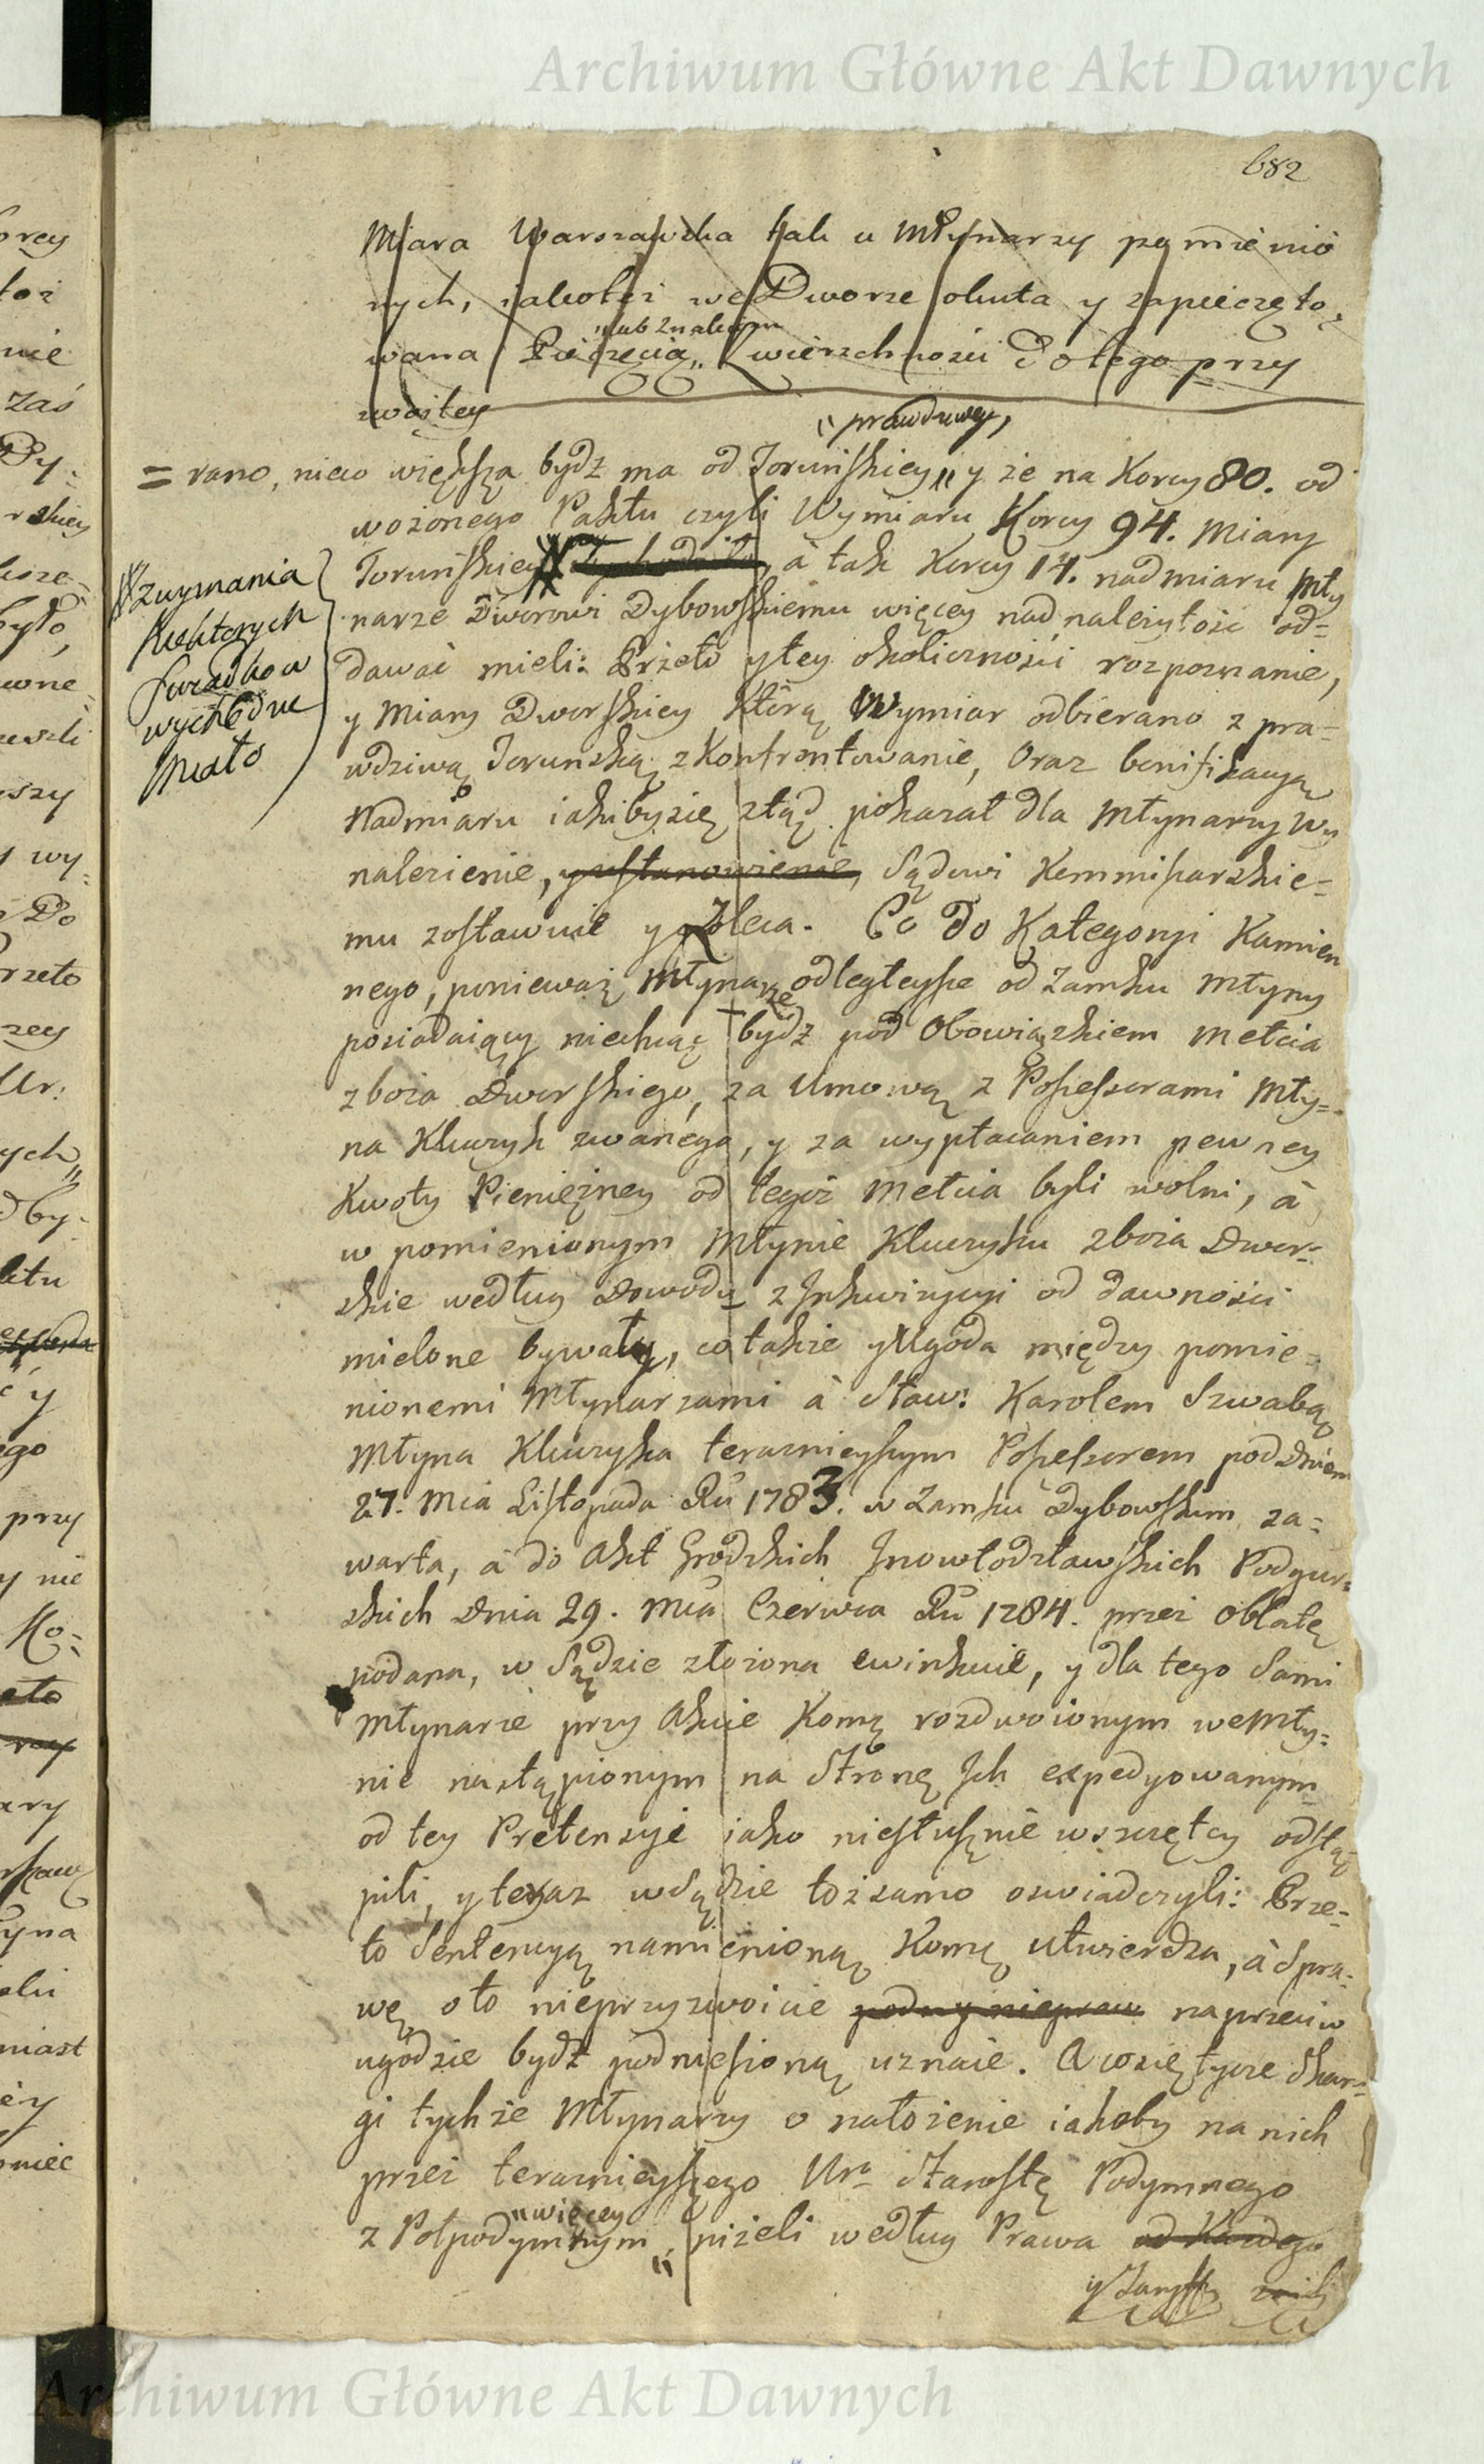 Archiwum Główne Akt Dawnych
682
Miara Warszawska tak u Młynarzy pomienio
nych, iakoteż we Dworze okuta y zapieczęto,
"lub Znakiem
wana Pieczęcią „ zwierzchności do tego przy
zwoitey
" prawdziwey,
= rano, nieco większa bydź ma od Toruńskiey " y że na Korcy 80. od
wożonego Paktu czyli Wymiaru Korcy 94. Miary
Toruńskiey, à tak Korcy 14. nadmiaru Mły
narze Dworowi Dybowskiemu więcey nad należytość od=
dawać mieli: Przeto y tey okoliczności rozpoznanie,
y Miary Dworskiey którą Wymiar odbierano z pra=
wdziwą Toruńską zkonfrontowanie, Oraz bonifikacyą
Nadmiaru iakiby się ztąd pokazał dla Młynarzy Wy
nalezienie, y ustanowienie, Sądowi Kommissarskie=
mu zostawuie y Zleca. Co do Kategoryi Kamien
nego, ponieważ Młynarze odlegleysze od Zamku Młyny
posiadaiący niechcąc bydź pod Obowiązkiem mełcia
zboża Dworskiego, za Umową z Possessorami Mły=
na Kluczyk zwanego, y za wypłacaniem pewney
Kwoty Pieniężney od tegoż Mełcia byli wolni, à
w pomienionym Młynie Kluczyku zboża Dwor=
skie według Dowodu z Inkwizycyi od dawności
mielone bywały, co także y Ugoda między pomie=
nionemi Młynarzami à Sław: Karolem Szwabą
Młyna Kluczyka teraznieyszym Possessorem pod Dniem
27. Mca Listopada Ru 1783. w Zamku Dybowskim za=
warta, à do Akt Grodzkich Inowłodzławskich Podgur=
skich Dnia 29. Mca Czerwca Ru 1784. przez Oblatę
podana, w Sądzie złożona ewinkuie, y dla tego Sami
Młynarze przy Akcie Komę rozdwoionym we Mły=
nie nastąpionym na Stronę Ich expedyowanym
od tey Pretensyi iako niesłusznie wszczętey odstą
pili, y teraz w Sądzie toż samo oswiadczyli: Prze=
to Sentencyą namienioną Komę utwierdza, à Spra=
wę oto nieprzyzwoicie naprzeciw
ugodzie bydź podniesioną uznaie. A co się tycze Skar=
gi tychże Młynarzy o nałożenie iakoby na nich
przez teraznieyszego Ur° Starostę Podymnego
"więcey
z Półpodymnym „ niżeli według Prawa od Każdego
y Taryffy
# z uznania
Niektorych
Swiadkow
wychodzić
Miało
Archiwum Główne Akt Dawnych